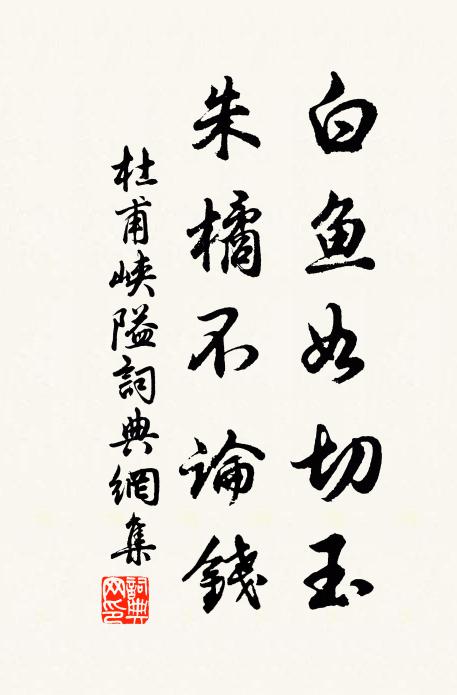 白鱼如切玉
朱橘不論錢
杜甫峽隘詞典網集
詞典网印